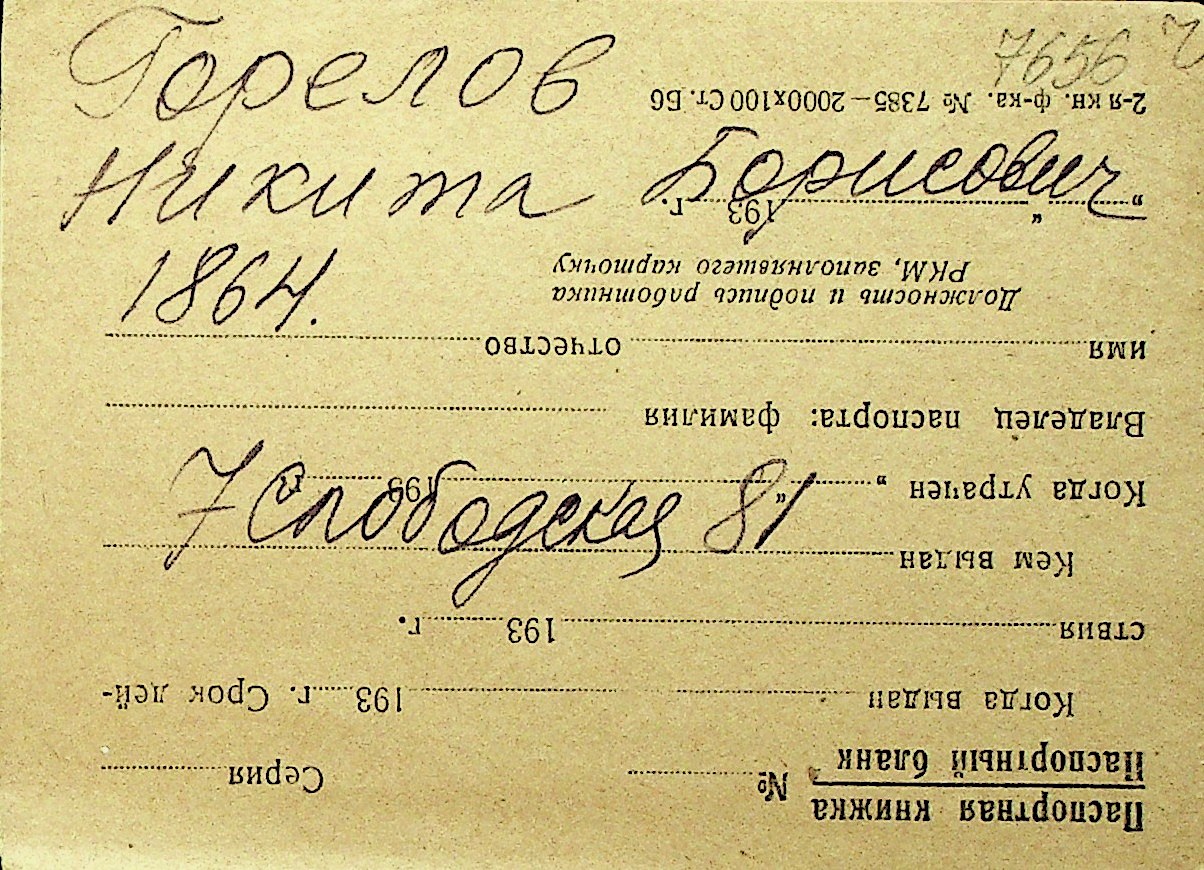 7656 2
Горелов
Никита Борисович
1864.
7 Слободская 81
Паспортная книжка
Паспортный бланк
№ Серия
Когда выдан 193 г. Срок дей-
ствия 193 г.
Кем выдан
Когда утрачен „ “ 193 г.
Владелец паспорта: фамилия
имя отчество
Должность и подпись работника
РКМ, заполнявшего карточку
„ “ 193 г.
2-я кн. ф-ка. № 7385—2000х100 Ст. Б6